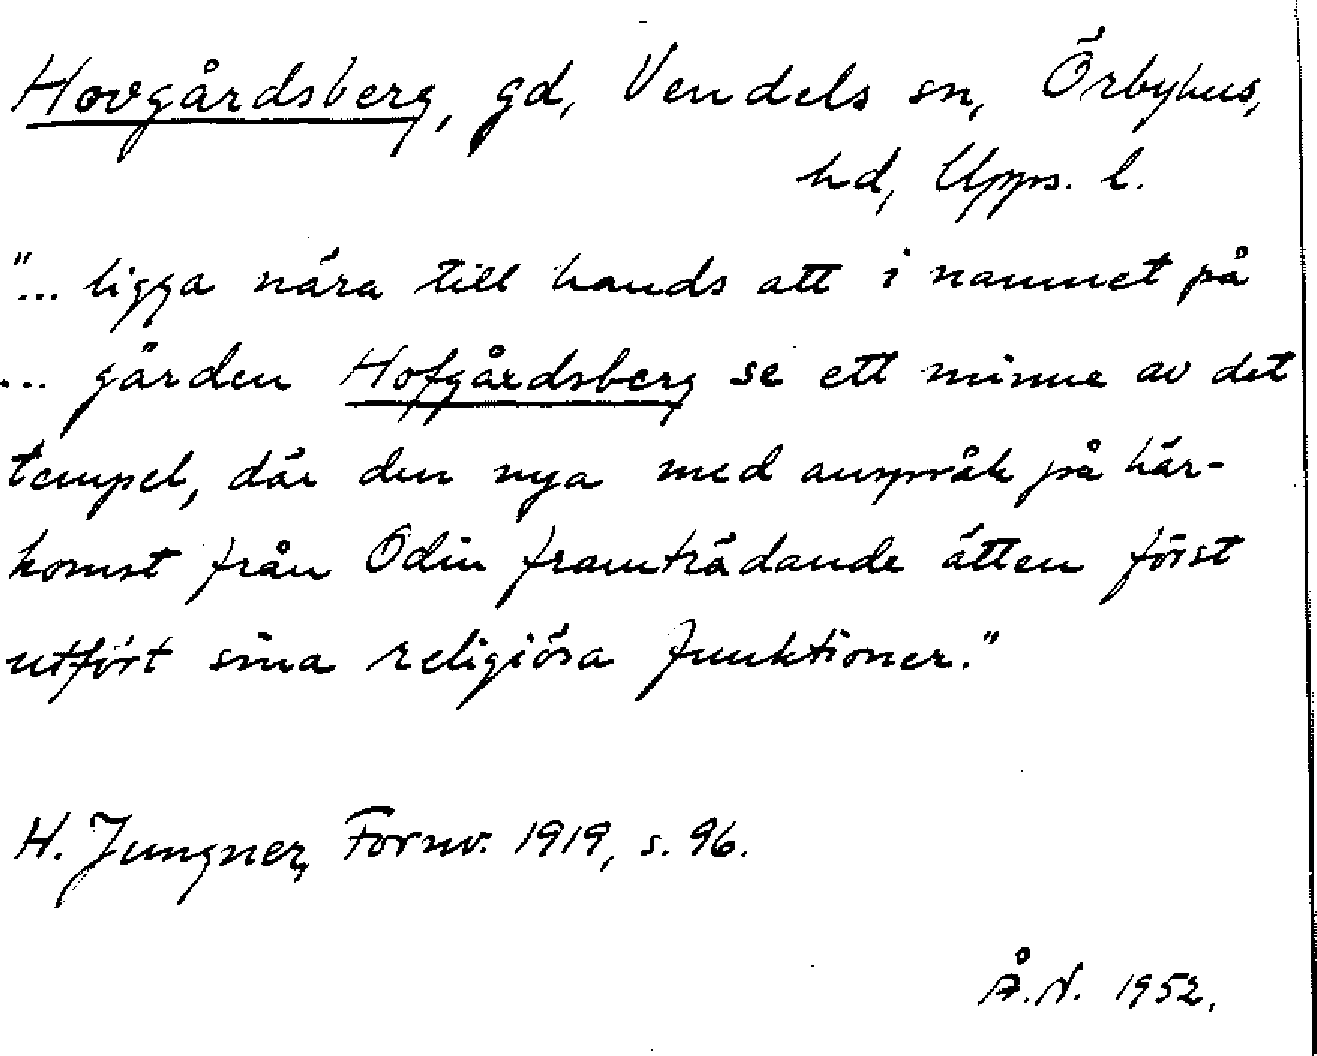 Hovgårdsberg, gd, Vendels sn, Örbyhus,
hd, Upps. l.
"... ligga nära till hands att i namnet på
... gården Hofgårdsberg se ett minne av det
tempel, där den nya med anspråk på här-
komst från Odin framträdande ätten först
utfört sina religiösa funktioner."
H. Jungner, Fornv. 1919, s. 96.
Å.N. 1952.